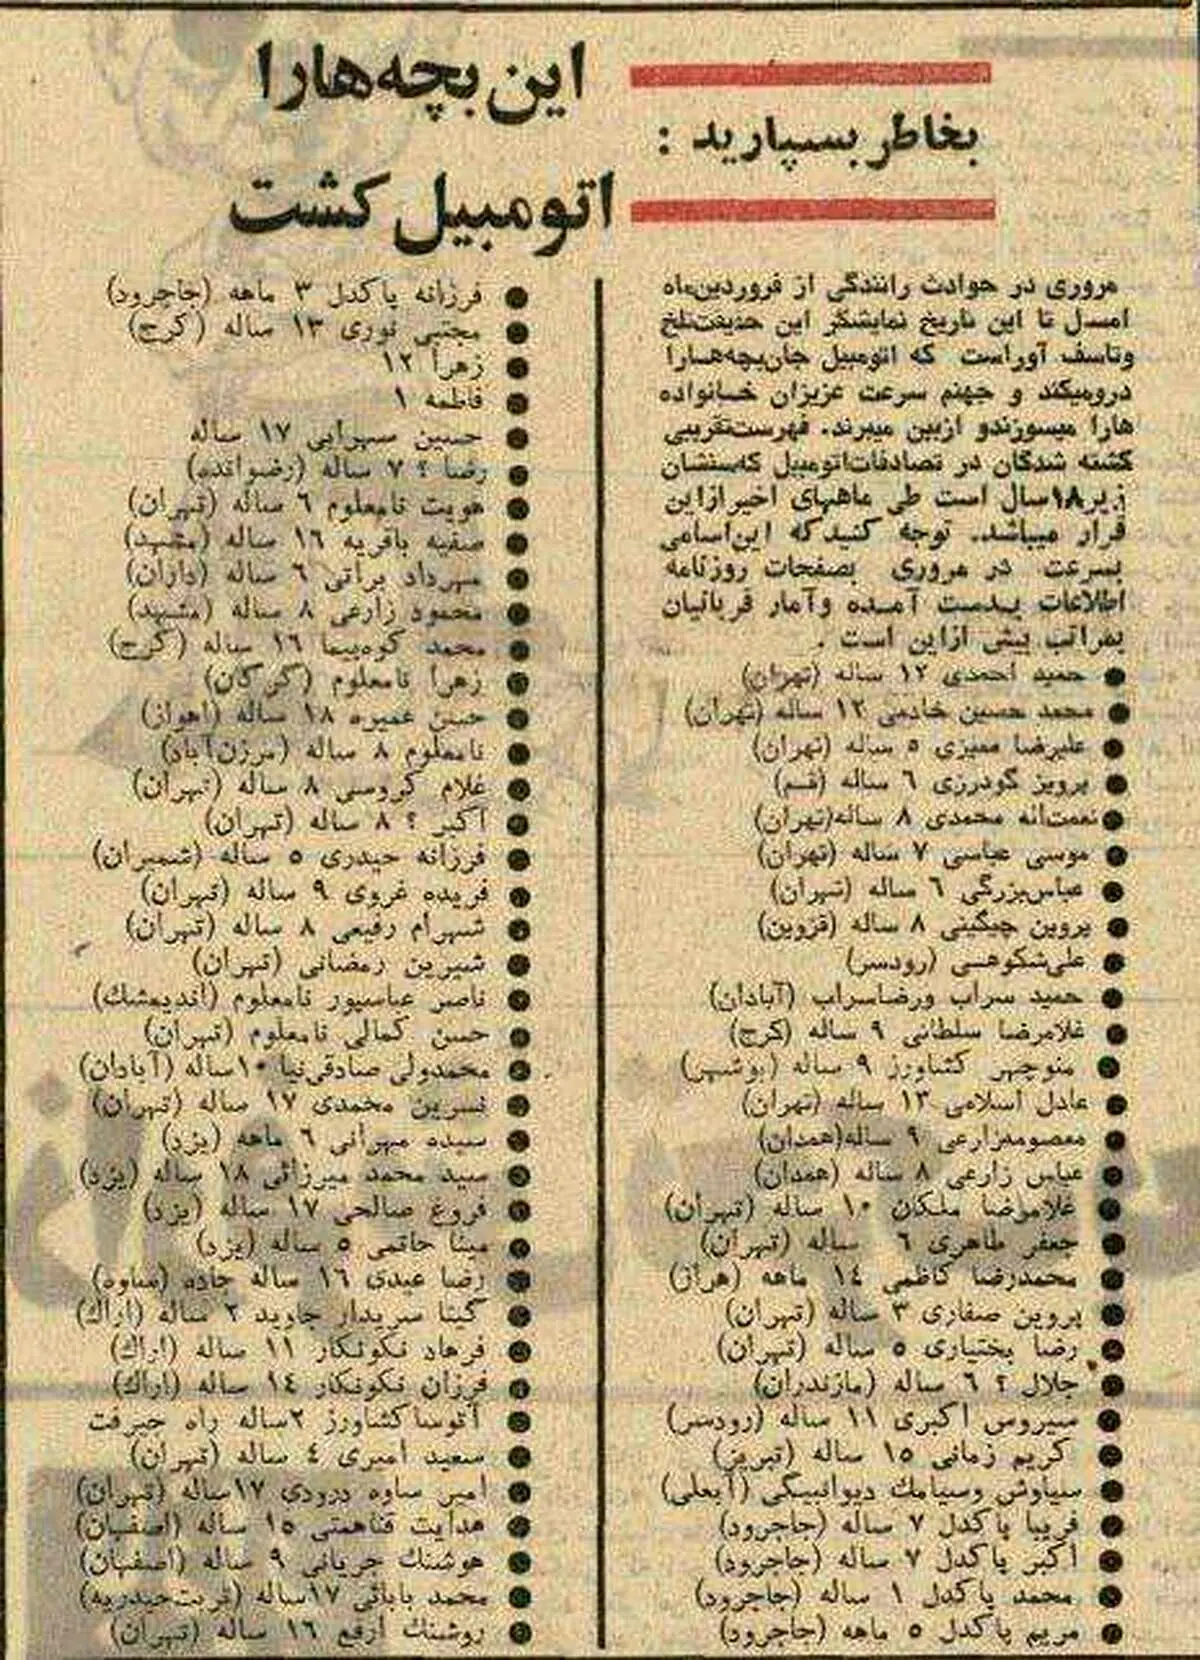 بخاطر بسپارید :
این بچه‌هارا
اتومبیل کشت
مروری در حوادث رانندگی از فروردین‌ماه
امسال تا این تاریخ نمایشگر این حقیقت‌تلخ
وتاسف آوراست که اتومبیل جان‌بچه‌هارا
درومیکند و جهنم سرعت عزیزان خانواده
هارا میسوزندو ازبین میبرند. فهرست‌تقریبی
کشته شدگان در تصادفات‌اتومبیل که‌سنشان
زیر۱۸سال است طی ماههای اخیرازاین
قرار میباشد. توجه کنیدکه این‌اسامی
بسرعت در مروری بصفحات روزنامه
اطلاعات بدست آمده وآمار قربانیان
بمراتب بیش ازاین است .
● حمید احمدی ۱۲ ساله (تهران)
● محمد حسین خادمی ۱۲ ساله (تهران)
● علیرضا ممیزی ۵ ساله (تهران)
● پرویز گودرزی ۶ ساله (قم)
● نعمت‌اله محمدی ۸ ساله(تهران)
● موسی عباسی ۷ ساله (تهران)
● عباس‌بزرگی ۶ ساله (تهران)
● پروین چیگینی ۸ ساله (قزوین)
● علی‌شکوهی (رودسر)
● حمید سراب ورضاسراب (آبادان)
● غلامرضا سلطانی ۹ ساله (کرج)
● منوچهر کشاورز ۹ ساله (بوشهر)
● عادل اسلامی ۱۳ ساله (تهران)
● معصومه‌زارعی ۹ ساله(همدان)
● عباس زارعی ۸ ساله (همدان)
● غلامرضا ملکان ۱۰ ساله (تهران)
● جعفر طاهری ۶ ساله (تهران)
● محمدرضا کاظمی ۱۴ ماهه (هراز)
● پروین صفاری ۳ ساله (تهران)
● رضا بختیاری ۵ ساله (تهران)
● جلال ؟ ۶ ساله (مازندران)
● سیروس اکبری ۱۱ ساله (رودسر)
● کریم زمانی ۱۵ ساله (تبریز)
● سیاوش وسیامك دیوانبیگی (آبعلی)
● فریبا پاکدل ۷ ساله (جاجرود)
● اکبر پاکدل ۷ ساله (جاجرود)
● محمد پاکدل ۱ ساله (جاجرود)
● مریم پاکدل ۵ ماهه (جاجرود)
● فرزانه پاکدل ۳ ماهه (جاجرود)
● مجتبی نوری ۱۳ ساله (کرج)
● زهرا ۱۲
● فاطمه ۱
● حسین سهرابی ۱۷ ساله
● رضا ؟ ۷ ساله (رضوانده)
● هویت نامعلوم ۶ ساله (تهران)
● صفیه باقریه ۱۶ ساله (مشهد)
● مهرداد براتی ۶ ساله (داران)
● محمود زارعی ۸ ساله (مشهد)
● محمد کوه‌پیما ۱۶ ساله (کرج)
● زهرا نامعلوم (گرگان)
● حسن عمیره ۱۸ ساله (اهواز)
● نامعلوم ۸ ساله (مرزن‌آباد)
● غلام کروسی ۸ ساله (تهران)
● اکبر ؟ ۸ ساله (تهران)
● فرزانه حیدری ۵ ساله (شمیران)
● فریده غروی ۹ ساله (تهران)
● شهرام رفیعی ۸ ساله (تهران)
● شیرین رمضانی (تهران)
● ناصر عباسپور نامعلوم (اندیمشك)
● حسن کمالی نامعلوم (تهران)
● محمدولی صادقی‌نیا ۱۰ساله (آبادان)
● نسرین محمدی ۱۷ ساله (تهران)
● سیده مهرانی ۶ ماهه (یزد)
● سید محمد میرزائی ۱۸ ساله (یزد)
● فروغ صالحی ۱۷ ساله (یزد)
● مینا حاتمی ۵ ساله (یزد)
● رضا عبدی ۱۶ ساله جاده (ساوه)
● گیتا سربدار جاوید ۲ ساله (اراك)
● فرهاد نکونکار ۱۱ ساله (اراك)
● فرزان نکونکار ۱۴ ساله (اراك)
● آتوسا کشاورز ۲ساله راه جیرفت
● سعید امیری ۴ ساله (تهران)
● امیر ساوه درودی ۱۷ساله (تهران)
● هدایت قناهمتی ۱۵ ساله (اصفهان)
● هوشنك جریانی ۹ ساله (اصفهان)
● محمد بابائی ۱۷ساله (تربت‌حیدریه)
● روشنك ارفع ۱۶ ساله (تهران)